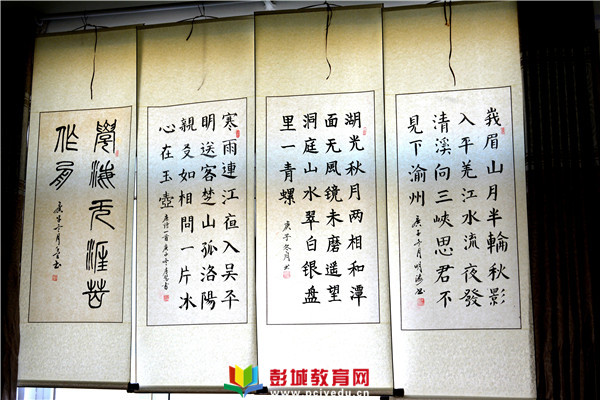 峩眉山月半輪秋影
入平羌江水流夜發
清溪向三峽思君不
見下渝州
庚子冬月
湖光秋月两相和潭
面无風镜未磨遥望
洞庭山水翠白银盘
里一青螺
庚子冬月
寒雨連江夜入吴平
明送客楚山孤洛陽
親友如相問一片冰
心在玉壺
學海无涯苦
作舟
彭城教育网
www.pcjyedu.cn